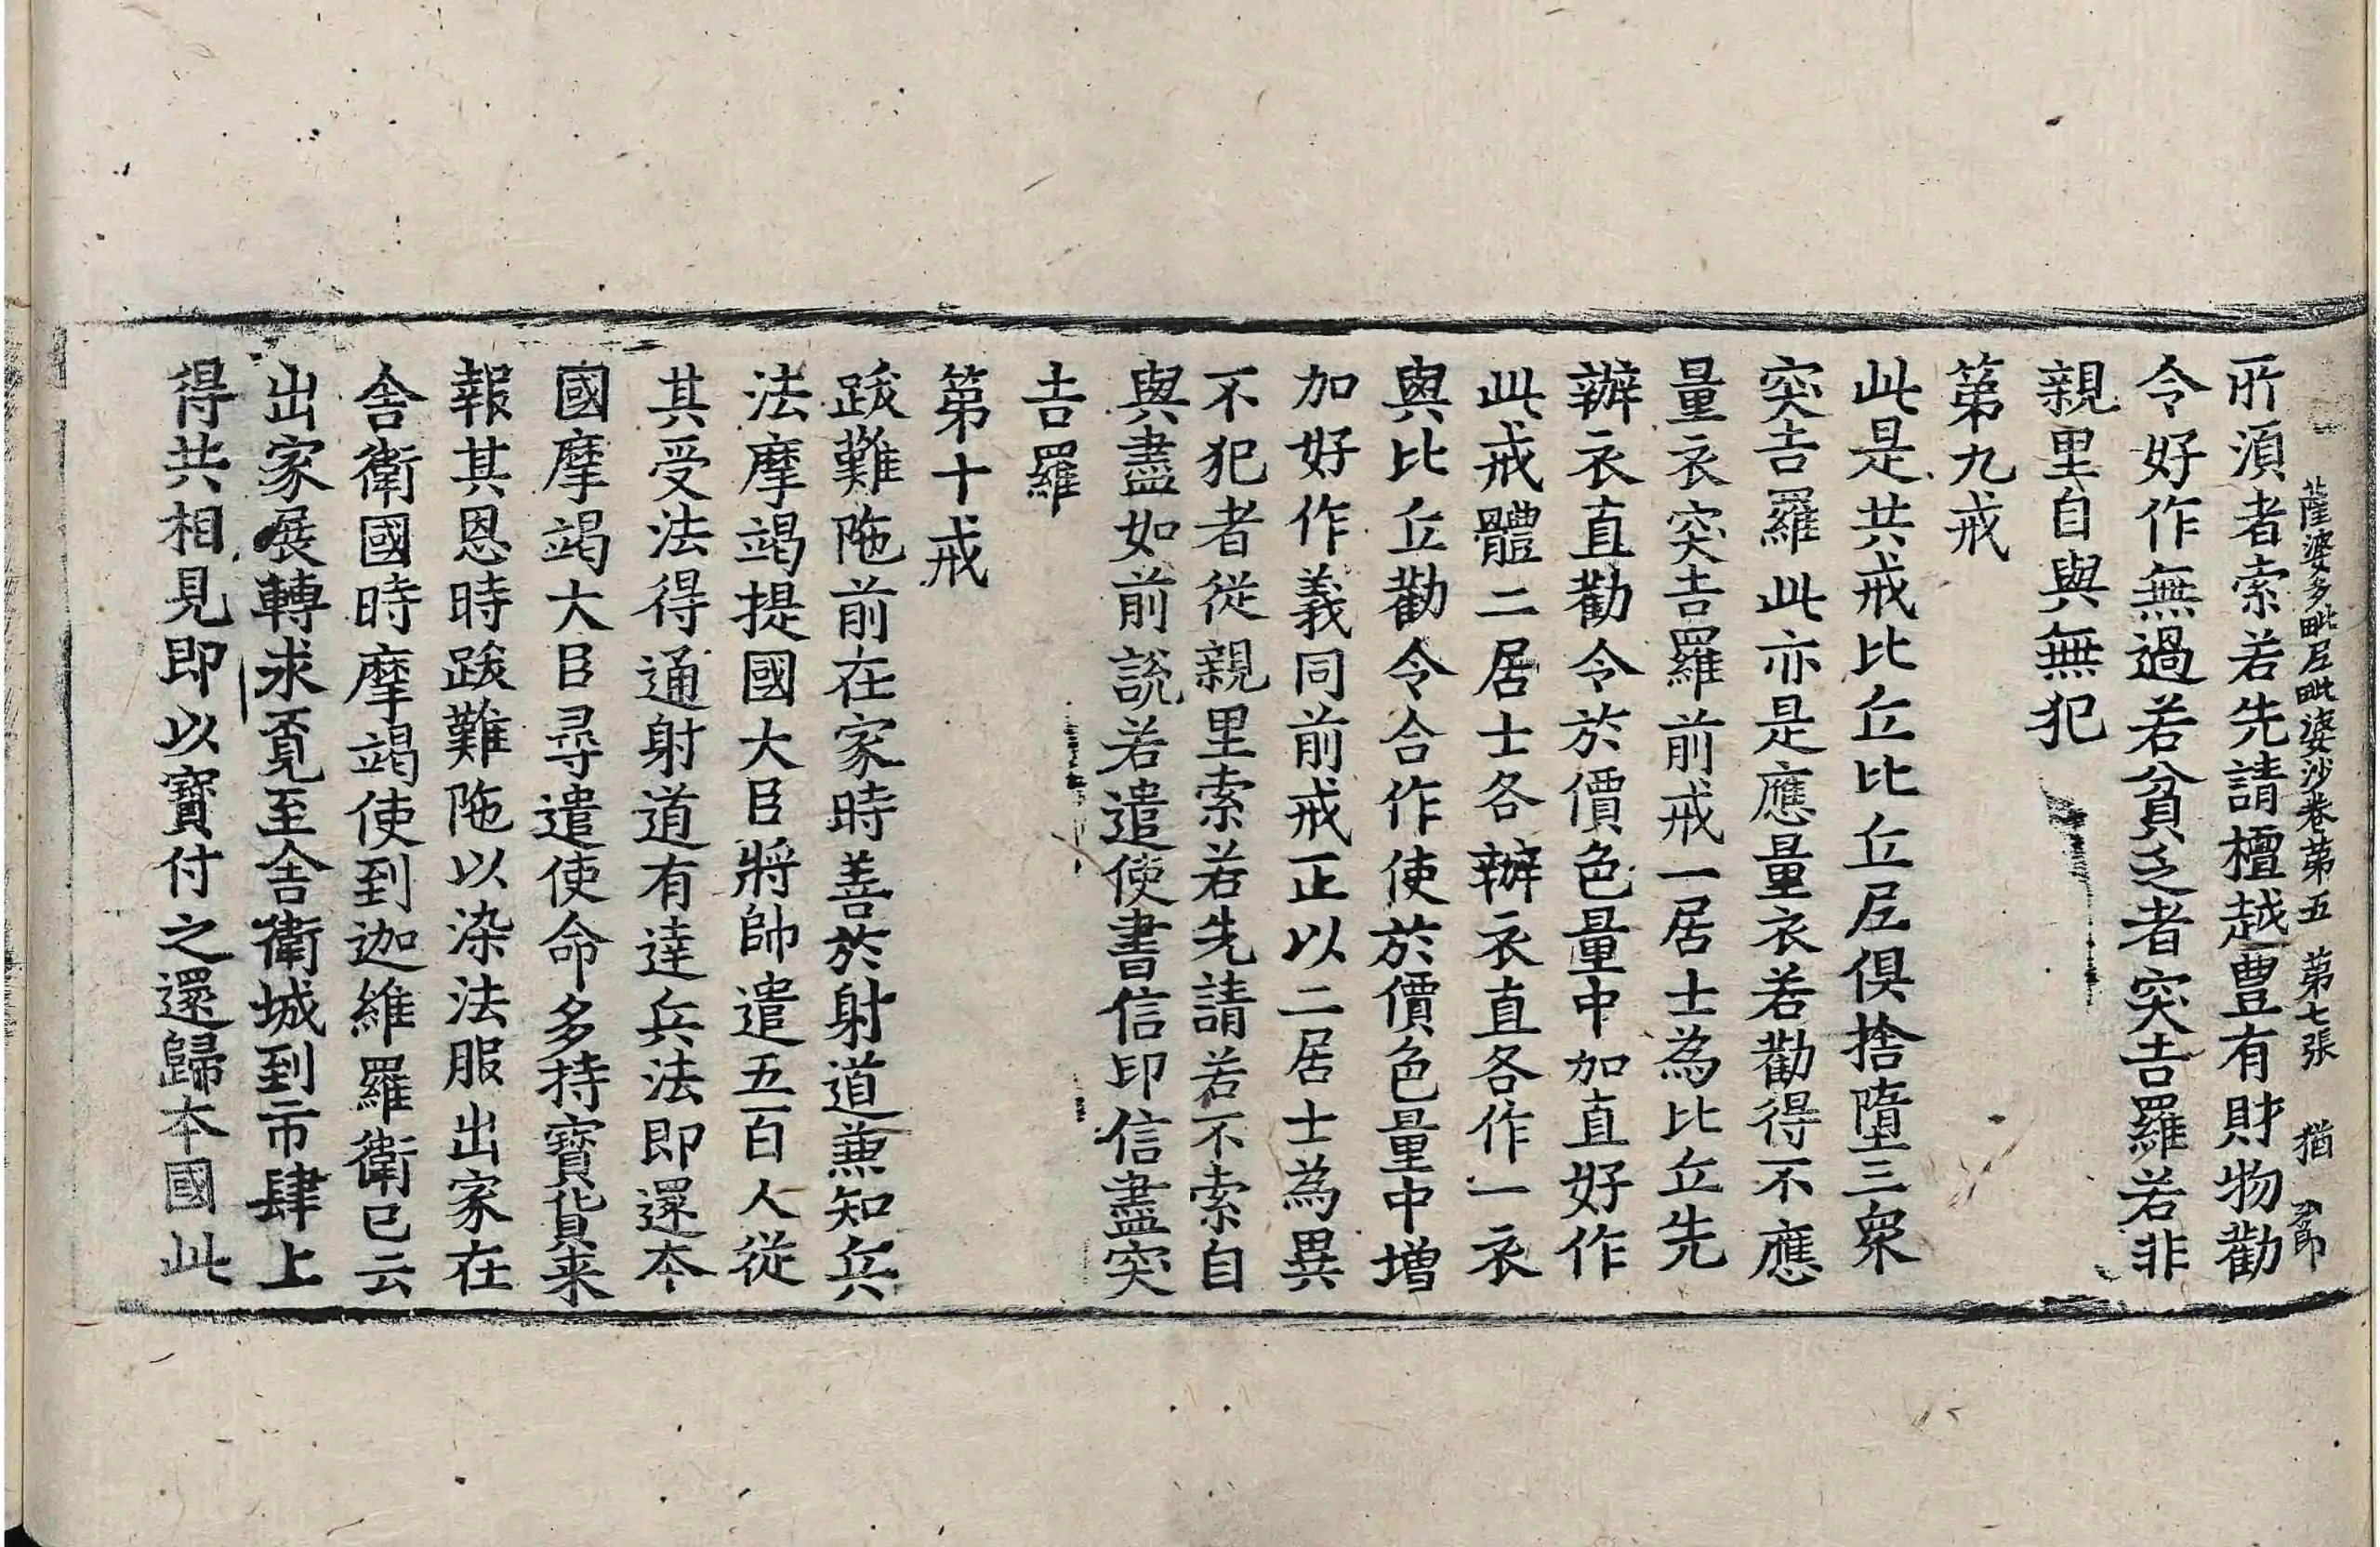 薩婆多毗尼毗婆沙卷第五　第七張　猶
所湏者索若先請檀越豊有財物勸
令好作無過若貧乏者突吉羅若非
親里自與無犯
第九戒
此是共戒比丘比丘尼俱捨墮三衆
突吉羅此亦是應量衣若勸得不應
量衣突吉羅前戒一居士為比丘先
辦衣直勸令於價色量中加直好作
此戒體二居士各辦衣直各作一衣
與比丘勸令合作使於價色量中增
加好作義同前戒正以二居士為異
不犯者從親里索若先請若不索自
與盡如前說若遣使書信印信盡突
吉羅
第十戒
跋難陁前在家時善於射道兼知兵
法摩竭提國大臣將帥遣五百人從
其受法得通射道有達兵法即還本
國摩竭大臣尋遣使命多持寶貨来
報其恩時跋難陁以染法服出家在
舍衛國時摩竭使到迦維羅衛已云
出家展轉求覓至舍衛城到市肆上
得共相見即以寶付之還歸本國此